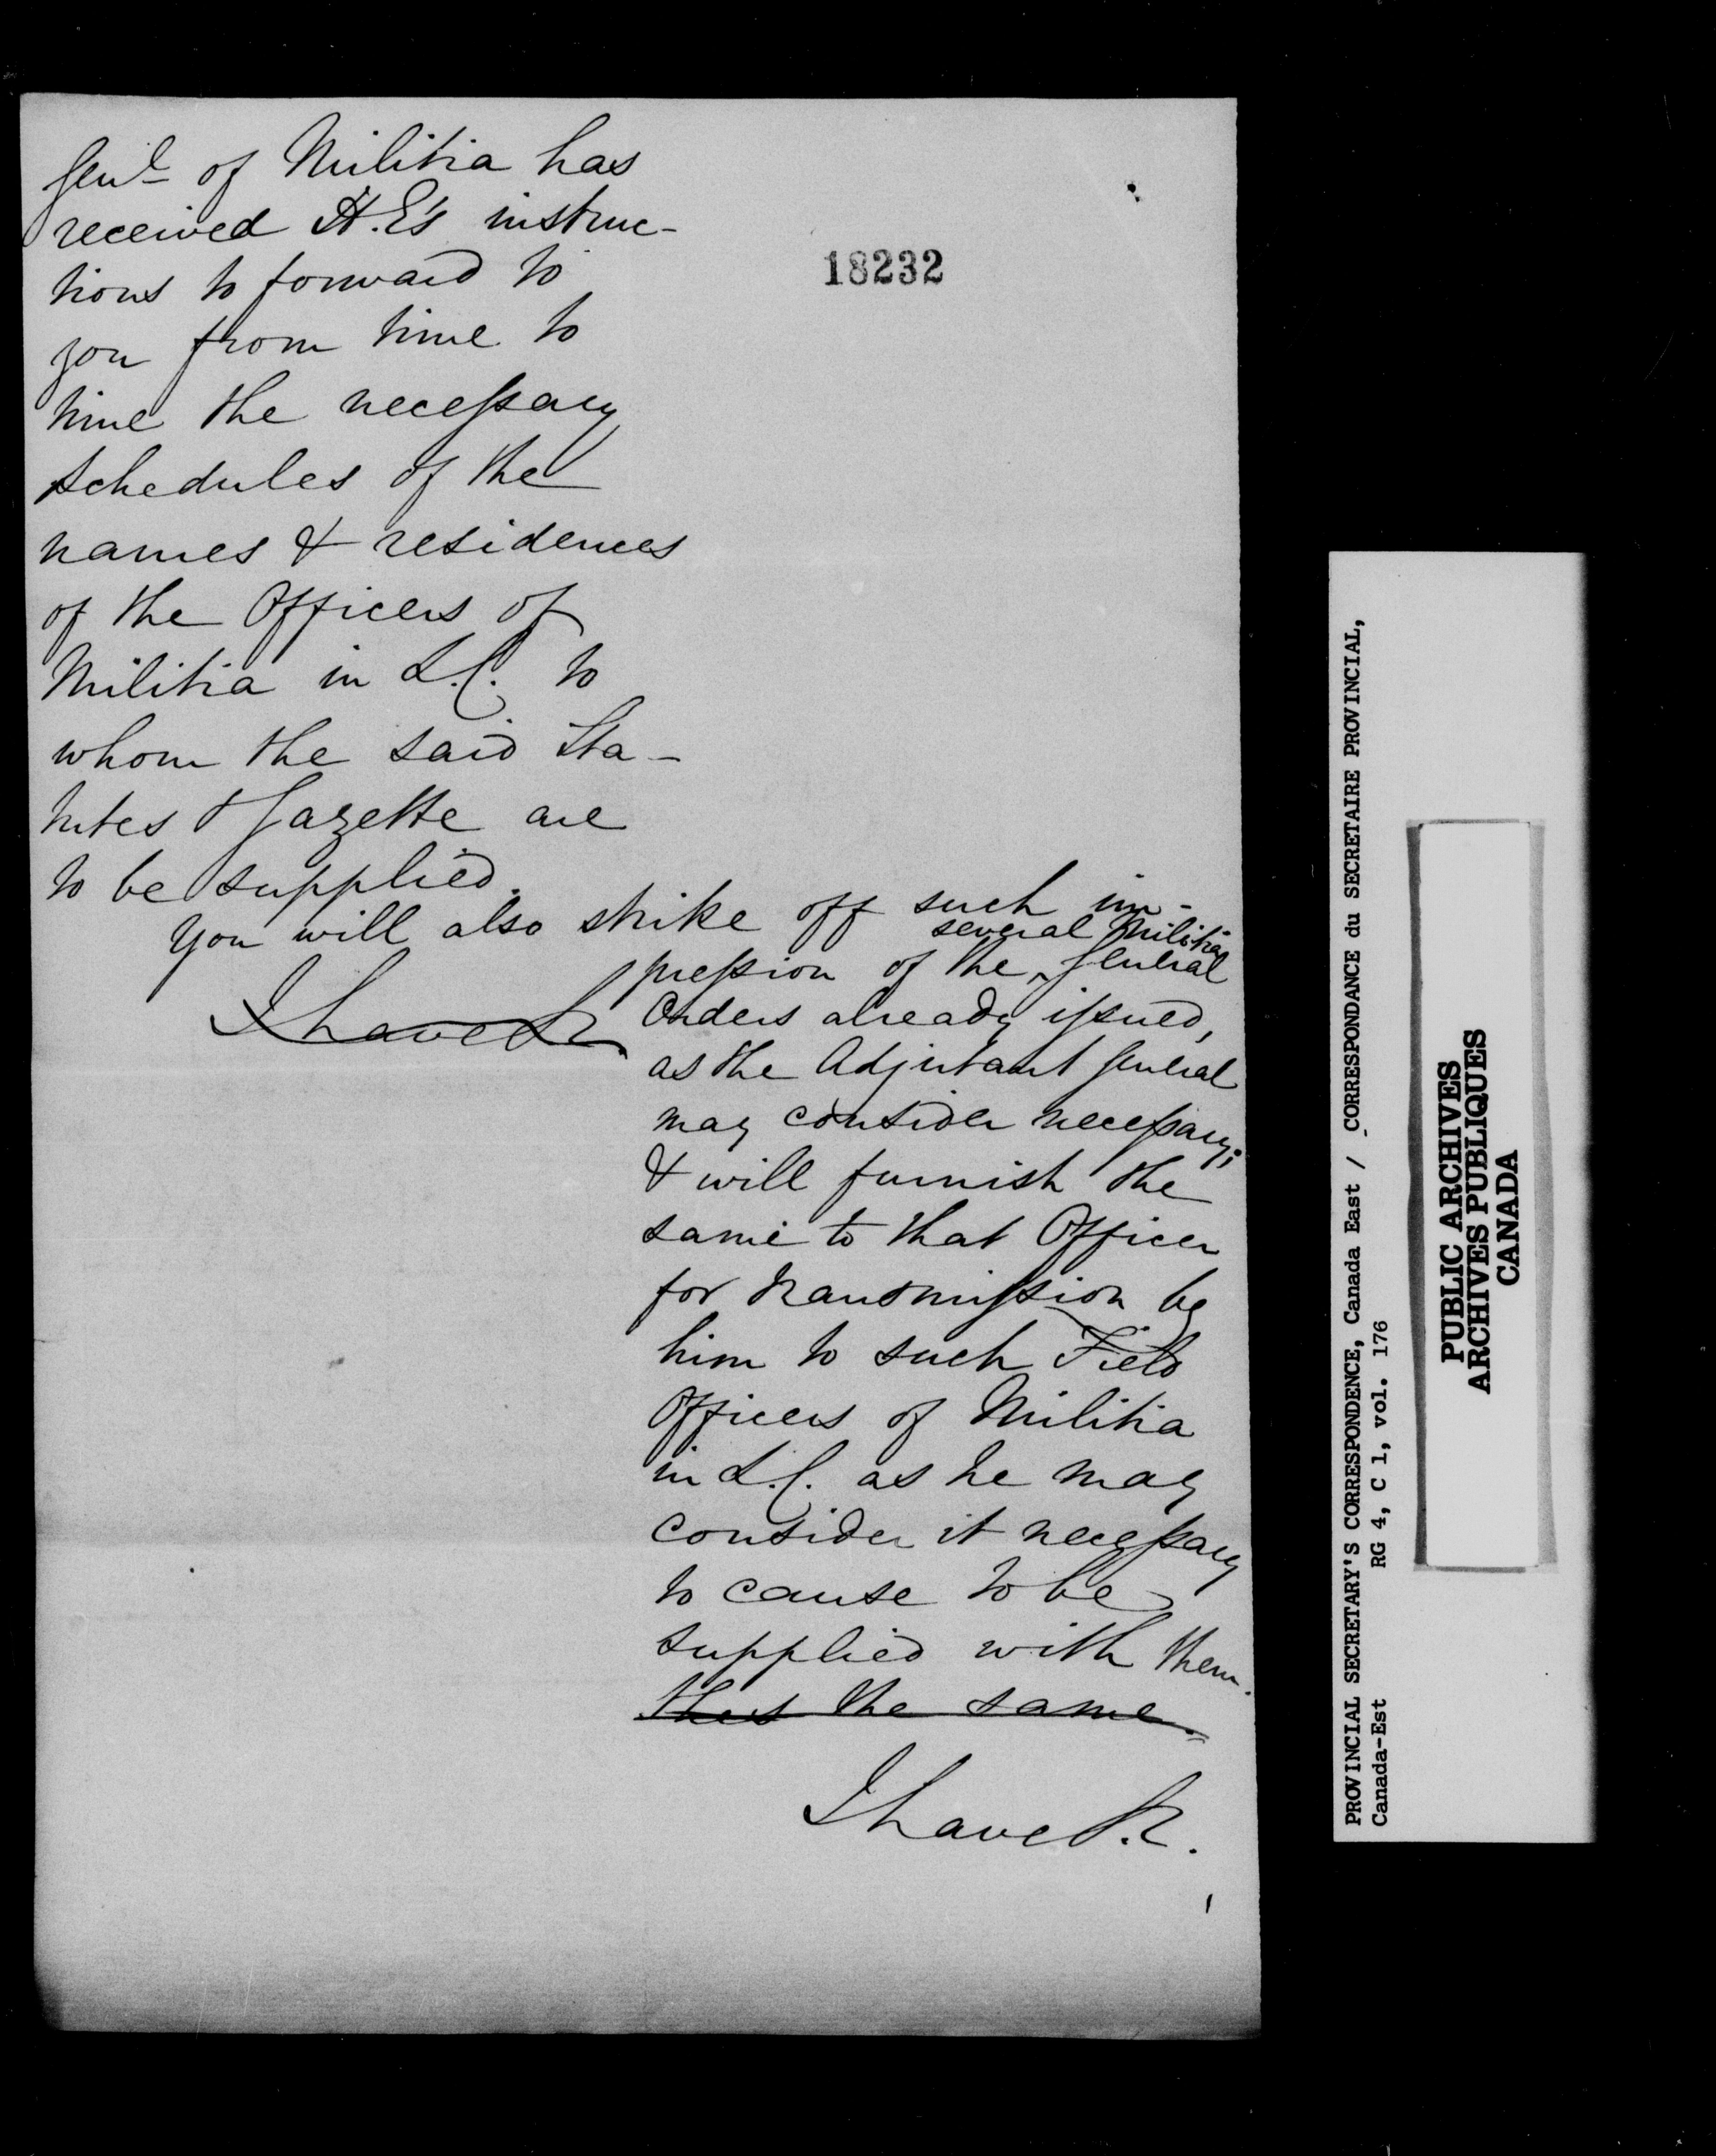 Genl of Militia has
received H.E's instruc-
tions to forward to
you from time to
time the necessary
schedules of the
names & residences
of the Officers of
Militia in L.C. to
whom the said Sta-
tutes & Gazette are
to be supplied.
You will also strike off such im-
several Militia
pression of the General
Orders already issued,
as the Adjutant General
may consider necessary;
& will furnish the
same to that Officer
for transmission by
him to such Field
Officers of Militia
in L.C. as he may
consider it necessary
to cause to be
supplied with them.
the same.
I have &c
I have &c.
18232
PROVINCIAL SECRETARY'S CORRESPONDENCE, Canada East / CORRESPONDANCE du SECRETAIRE PROVINCIAL,
Canada-Est RG 4, C 1, vol. 176
PUBLIC ARCHIVES
ARCHIVES PUBLIQUES
CANADA